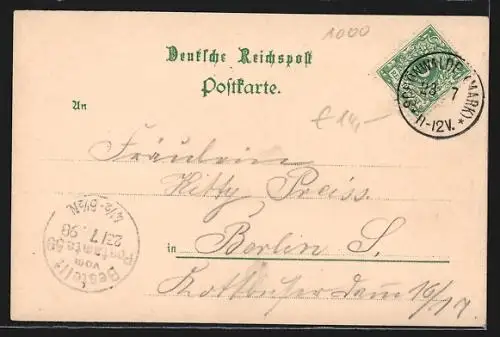 1000
Deutsche Reichspost
Postkarte.
An
€ 14,-
Fräulein
Kitty Preiss.
in Berlin S.
Kottbuser Damm 16/17
(MARK) *
23 7
11-12V.
Bestellt
vom
Postamte
23/7.98